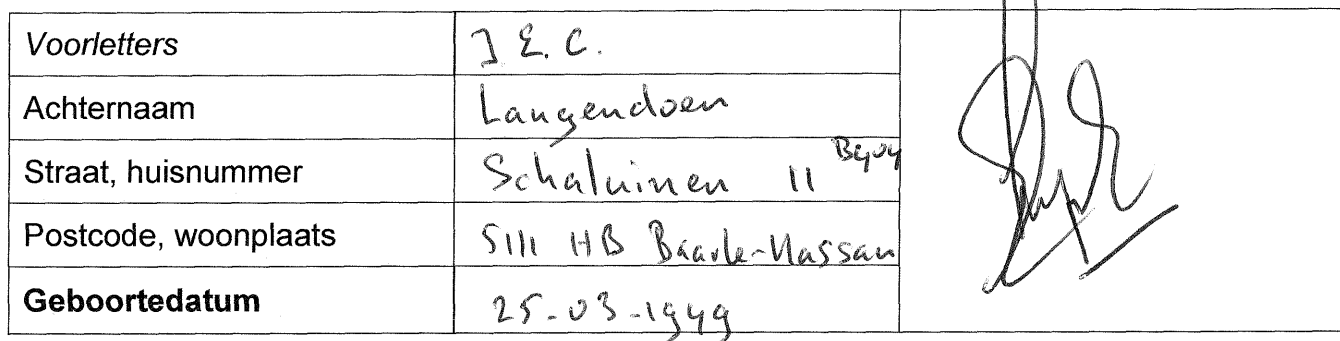 Voorletters J E. C.
Achternaam Langendoen
Straat, huisnummer Schaluinen 11
Postcode, woonplaats 5111 HB Baarle-Nassau
Geboortedatum 25-03-1949